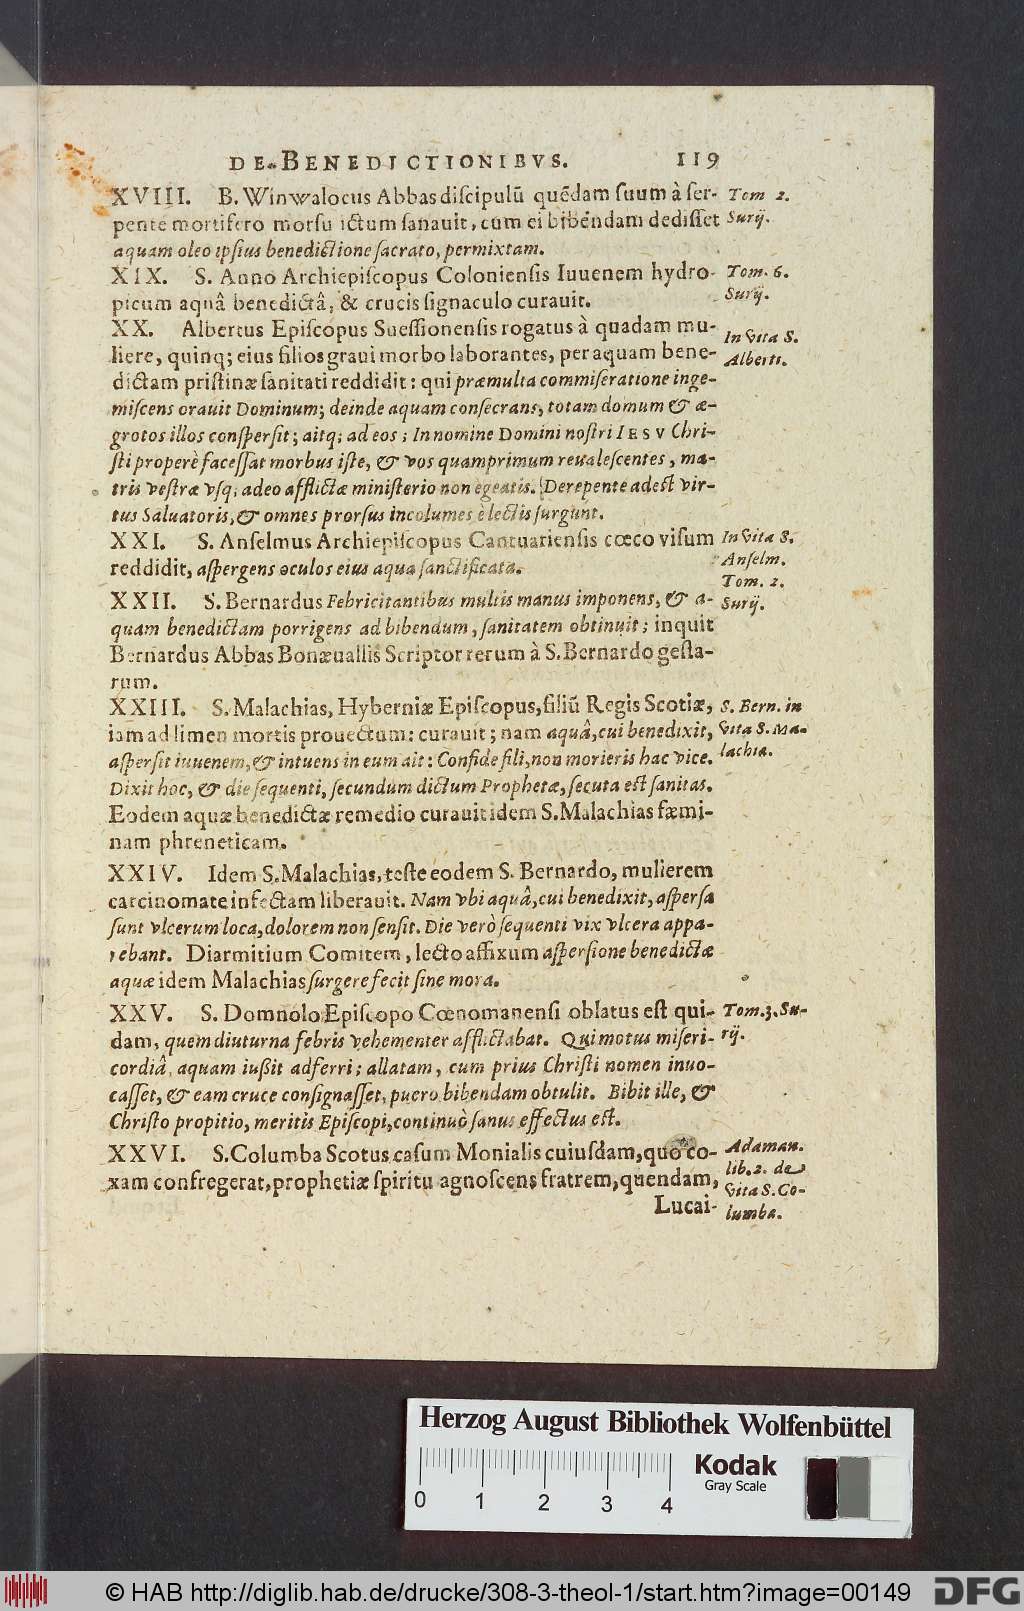 DE BENEDICTIONIBVS. 119
XVIII. B. Winwalocus Abbas discipulũ quẽdam suum à ser-
pente mortifero morsu ictum sanauit, cum ei bibendam dedisset
aquam oleo ipsius benedictione sacrato, permixtam.
Tom 2.
Surij.
XIX. S. Anno Archiepiscopus Coloniensis Iuuenem hydro-
picum aquâ benedictâ, & crucis signaculo curauit.
Tom. 6.
Surij.
XX. Albertus Episcopus Suessionensis rogatus à quadam mu-
liere, quinq; eius filios graui morbo laborantes, per aquam bene-
dictam pristinæ sanitati reddidit: qui præmulta commiseratione inge-
miscens orauit Dominum; deinde aquam consecrans, totam domum & æ-
grotos illos conspersit; aitq; ad eos; In nomine Domini nostri IESV Chri-
sti properè facessat morbus iste, & vos quamprimum reualescentes, ma-
tris vestræ vsq; adeo afflictæ ministerio non egeatis. Derepente adest vir-
tus Saluatoris, & omnes prorsus incolumes è lectis surgunt.
In vita S.
Alberti.
XXI. S. Anselmus Archiepiscopus Cantuariensis cœco visum
reddidit, aspergens oculos eius aqua sanctificata.
In vita S.
Anselm.
XXII. S. Bernardus Febricitantibus multis manus imponens, & a-
quam benedictam porrigens ad bibendum, sanitatem obtinuit; inquit
Bernardus Abbas Bonæuallis Scriptor rerum à S. Bernardo gesta-
rum.
Tom. 2.
Surij.
XXIII. S. Malachias, Hyberniæ Episcopus, filiũ Regis Scotiæ,
iam ad limen mortis prouectum: curauit; nam aquâ, cui benedixit,
aspersit iuuenem, & intuens in eum ait: Confide fili, non morieris hac vice.
Dixit hoc, & die sequenti, secundum dictum Prophetæ, secuta est sanitas.
Eodem aquæ benedictæ remedio curauit idem S. Malachias fæmi-
nam phreneticam.
S. Bern. in
vita S. Ma-
lachia.
XXIV. Idem S. Malachias, teste eodem S. Bernardo, mulierem
carcinomate infectam liberauit. Nam vbi aquâ, cui benedixit, aspersa
sunt vlcerum loca, dolorem non sensit. Die verò sequenti vix vlcera appa-
rebant. Diarmitium Comitem, lecto affixum aspersione benedictæ
aquæ idem Malachias surgere fecit sine mora.
XXV. S. Domnolo Episcopo Cœnomanensi oblatus est qui-
dam, quem diuturna febris vehementer afflictabat. Qui motus miseri-
cordiâ, aquam iußit adferri; allatam, cum prius Christi nomen inuo-
casset, & eam cruce consignasset, puero bibendam obtulit. Bibit ille, &
Christo propitio, meritis Episcopi, continuò sanus effectus est.
Tom. 3. Su-
rij.
XXVI. S. Columba Scotus casum Monialis cuiusdam, quo co-
xam confregerat, prophetiæ spiritu agnoscens fratrem, quendam,
Lucai-
Adaman.
lib. 2. de
vita S. Co-
lumba.
Herzog August Bibliothek Wolfenbüttel
Kodak
Gray Scale
0 1 2 3 4
© HAB http://diglib.hab.de/drucke/308-3-theol-1/start.htm?image=00149
DFG